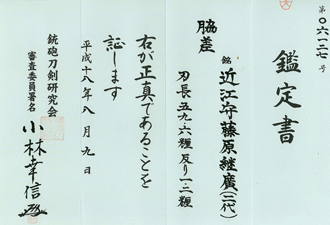 第〇六一二七号
鑑定書
脇差 銘 近江守藤原継廣(二代)
刃長五九・六糎 反り一・二糎
右が正真であることを
証します
平成十八年八月九日
銃砲刀剣研究会
審査委員署名 小林幸信